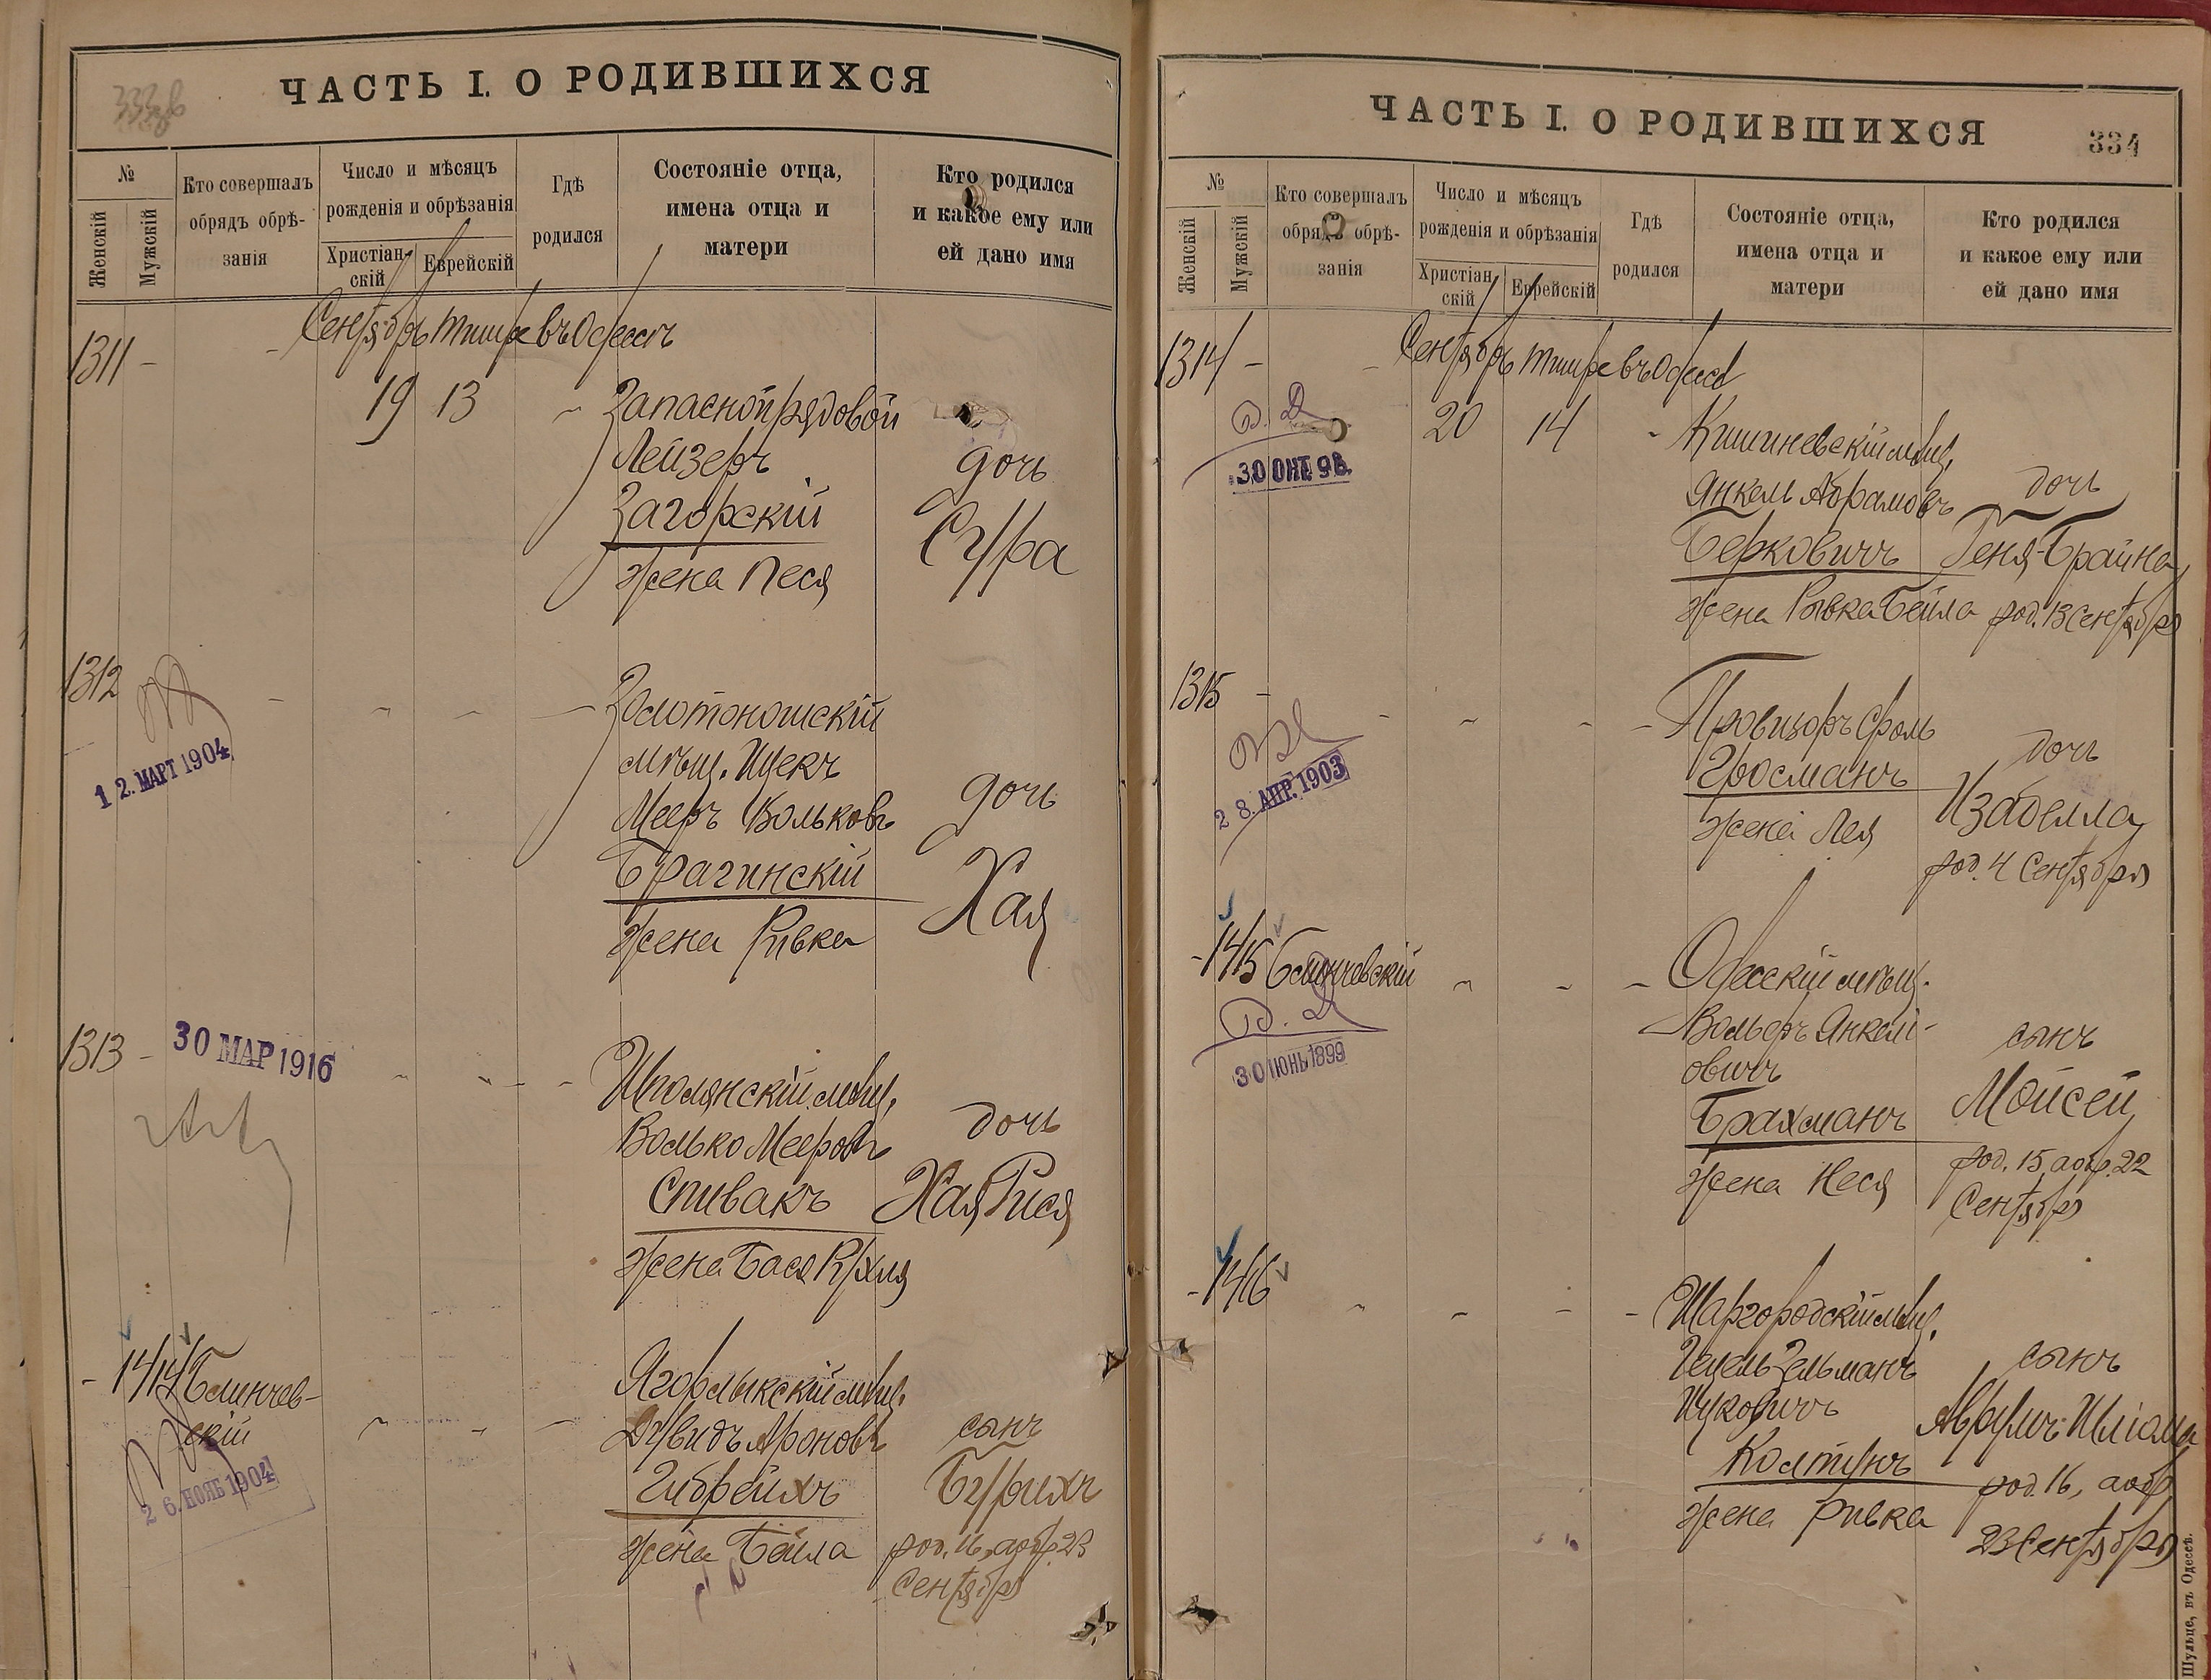 ЧАСТЬ I. О РОДИВШИХСЯ
№
Женскій
Мужскій
Кто совершалъ
обрядъ обрѣ-
занія
Число и мѣсяцъ
рожденія и обрѣзанія
Христіан-
скій
Еврейскій
Гдѣ
родился
Состояніе отца,
имена отца и
матери
Кто родился
и какое ему или
ей дано имя
Сентябрь Тишре въ Одессѣ
1311 -
19 13
Запасной рядовой
Лейзеръ
Загорскій
жена Песя
дочь
Сура
1312
12. МАРТ 1904
Золотоношскій
мѣщ. Ицекъ
Мееръ Вольковъ
Брагинскій
жена Ривка
дочь
Хая
1313 -
30 МАР 1916
Шполянскій мѣщ.
Волько Мееровъ
Спивакъ
жена Бася Рухля
дочь
Хая Рися
- 1414 Блинчев-
скій
26. НОЯБ 1904
Ягорлыкскій мѣщ.
Дувидъ Ароновъ
Гибрейхъ
жена Бейла
сынъ
Бурихъ
род. 16, обр. 23
Сентября
ЧАСТЬ I. О РОДИВШИХСЯ
334
№
Женскій
Мужскій
Кто совершалъ
обрядъ обрѣ-
занія
Число и мѣсяцъ
рожденія и обрѣзанія
Христіан-
скій
Еврейскій
Гдѣ
родился
Состояніе отца,
имена отца и
матери
Кто родился
и какое ему или
ей дано имя
Сентябрь Тишре въ Одессѣ
1314 -
30 ОКТ. 98.
20 14
Кишиневскій мѣщ.
Янкель Абрамовъ
Берковичъ
жена Рывка Бейла
дочь
Геня-Брайна
род. 13 Сентября
1315 -
28. АПР. 1903
Провизоръ Сроль
Гросманъ
жена Лея
дочь
Изабелла
род. 4 Сентября
- 1415 Блинчевскій
30 ІЮНЬ 1899
Одесскій мѣщ.
Вольфъ Янкел-
овичъ
Брахманъ
жена Неся
сынъ
Мойсей
род. 15, обр. 22
Сентября
- 1416
Шаргородскій мѣщ.
Зельманъ
Ицковичъ
Колтунъ
жена Ривка
сынъ
Аврумъ-
род. 16, обр
23 Сентября
Шульце, въ Одессѣ.